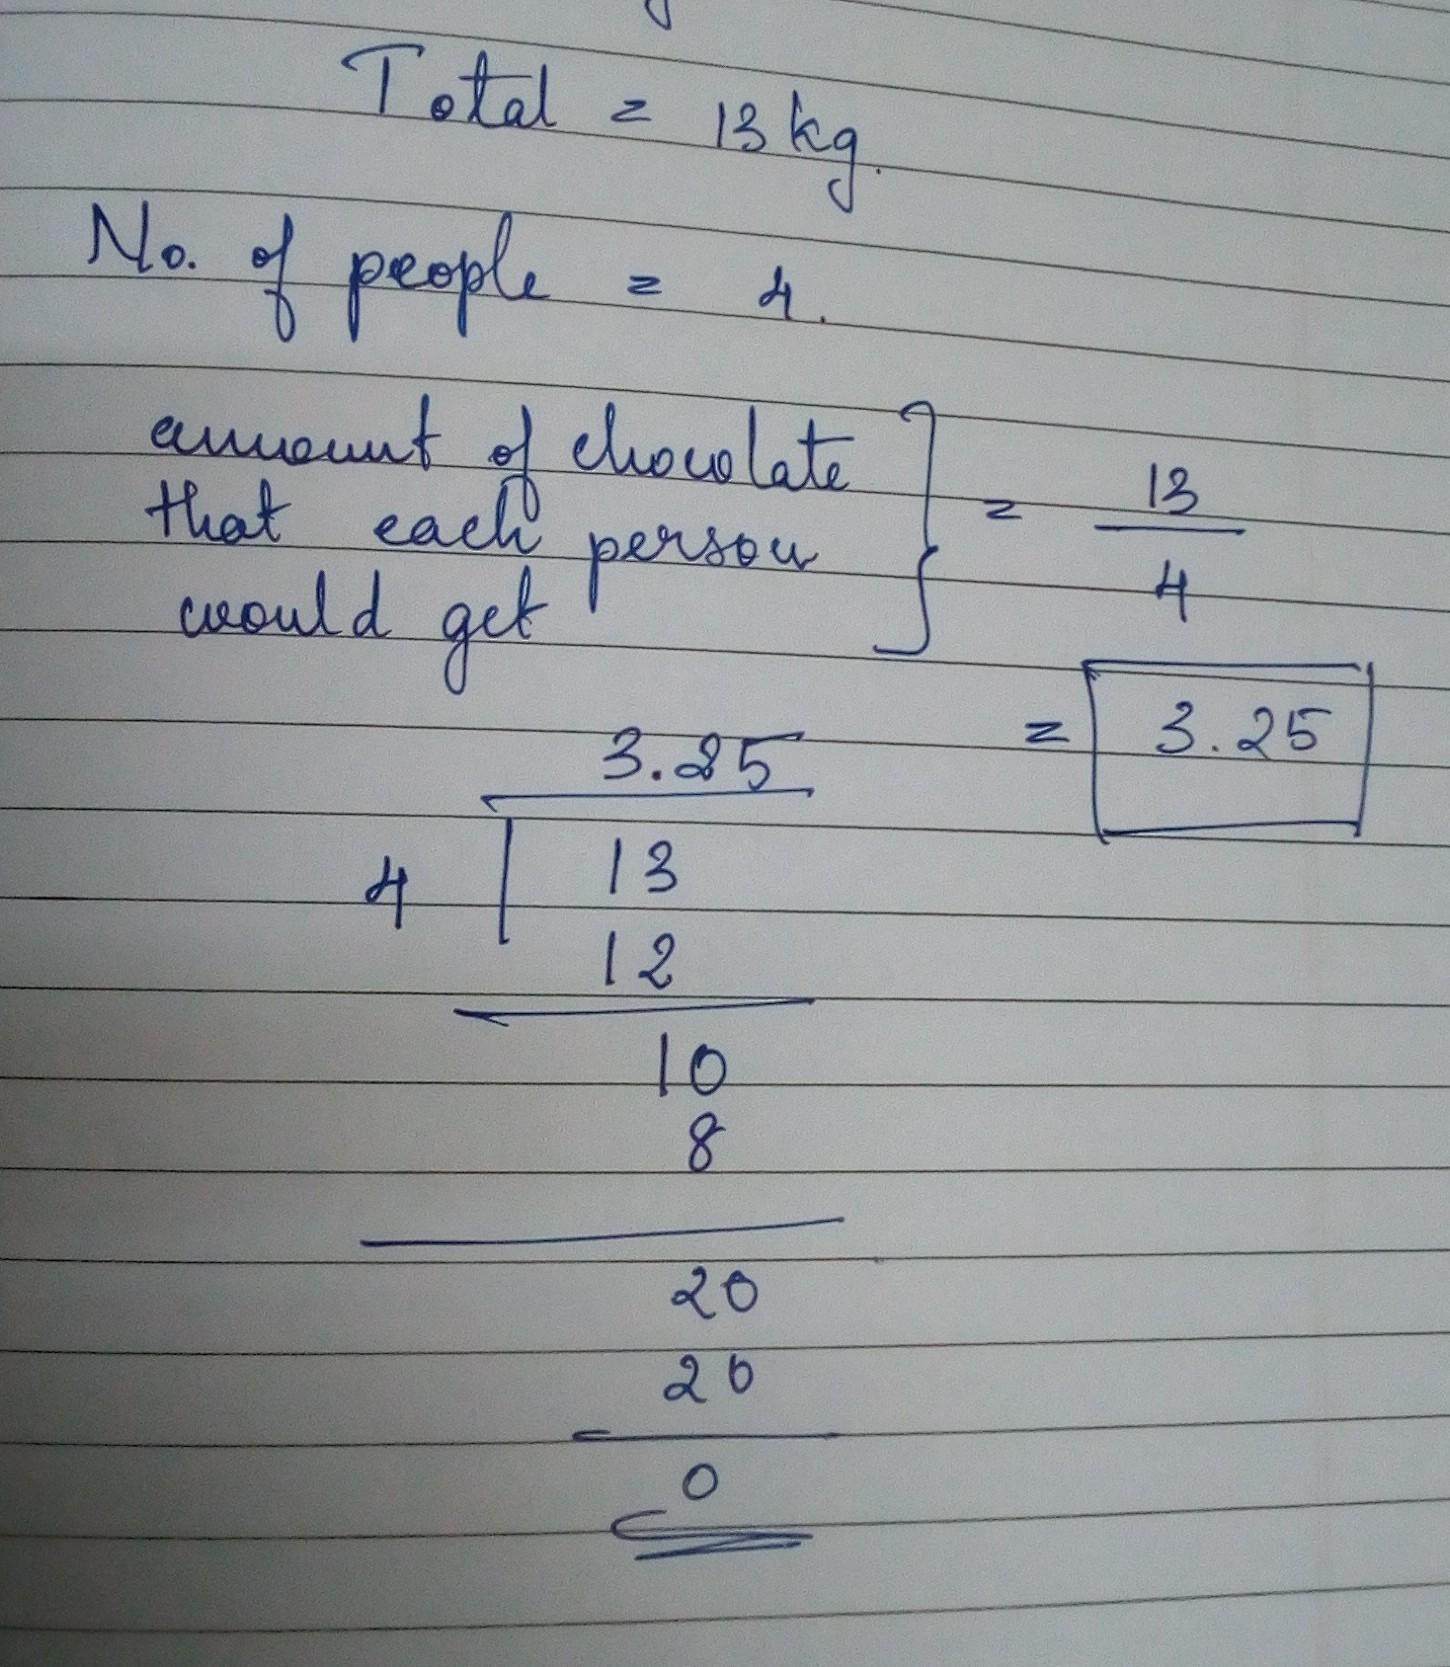 Total = 13 kg.
No. of people = 4.
amount of chocolate
that each person
would get
} = 13
4
= 3.25
3.25
4 13
12
10
8
20
20
0